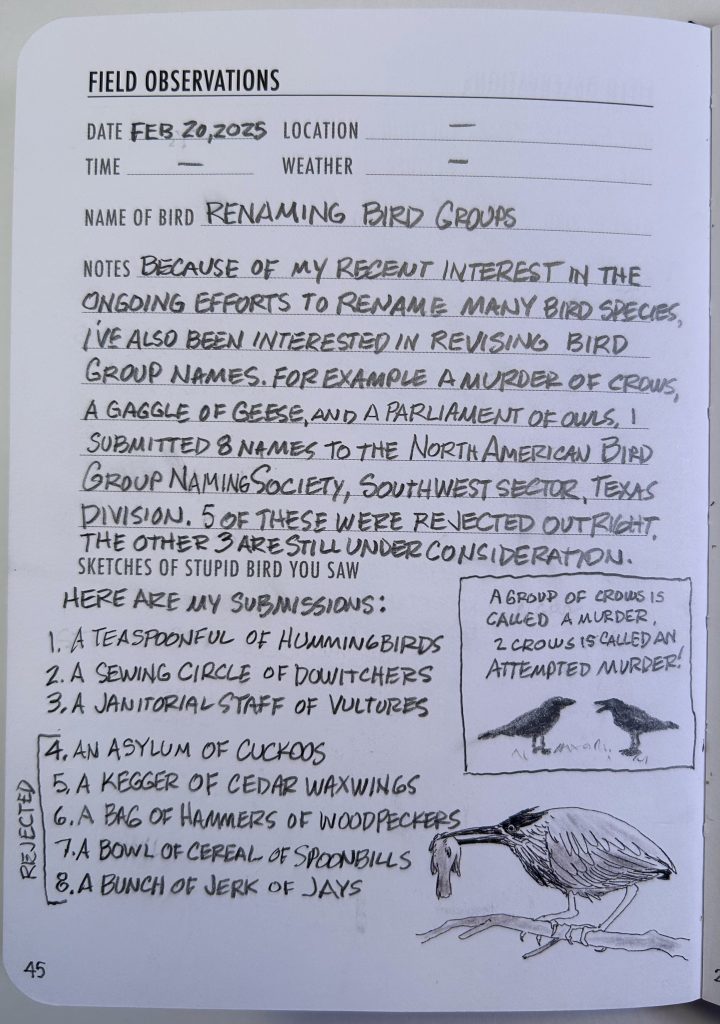 FIELD OBSERVATIONS
DATE FEB 20, 2025 LOCATION —
TIME — WEATHER —
NAME OF BIRD RENAMING BIRD GROUPS
NOTES BECAUSE OF MY RECENT INTEREST IN THE
ONGOING EFFORTS TO RENAME MANY BIRD SPECIES,
I'VE ALSO BEEN INTERESTED IN REVISING BIRD
GROUP NAMES. FOR EXAMPLE A MURDER OF CROWS,
A GAGGLE OF GEESE, AND A PARLIAMENT OF OWLS. I
SUBMITTED 8 NAMES TO THE NORTH AMERICAN BIRD
GROUP NAMING SOCIETY, SOUTHWEST SECTOR, TEXAS
DIVISION. 5 OF THESE WERE REJECTED OUTRIGHT.
THE OTHER 3 ARE STILL UNDER CONSIDERATION.
SKETCHES OF STUPID BIRD YOU SAW
HERE ARE MY SUBMISSIONS:
1. A TEASPOONFUL OF HUMMINGBIRDS
2. A SEWING CIRCLE OF DOWITCHERS
3. A JANITORIAL STAFF OF VULTURES
REJECTED
4. AN ASYLUM OF CUCKOOS
5. A KEGGER OF CEDAR WAXWINGS
6. A BAG OF HAMMERS OF WOODPECKERS
7. A BOWL OF CEREAL OF SPOONBILLS
8. A BUNCH OF JERK OF JAYS
A GROUP OF CROWS IS
CALLED A MURDER.
2 CROWS IS CALLED AN
ATTEMPTED MURDER!
45
2